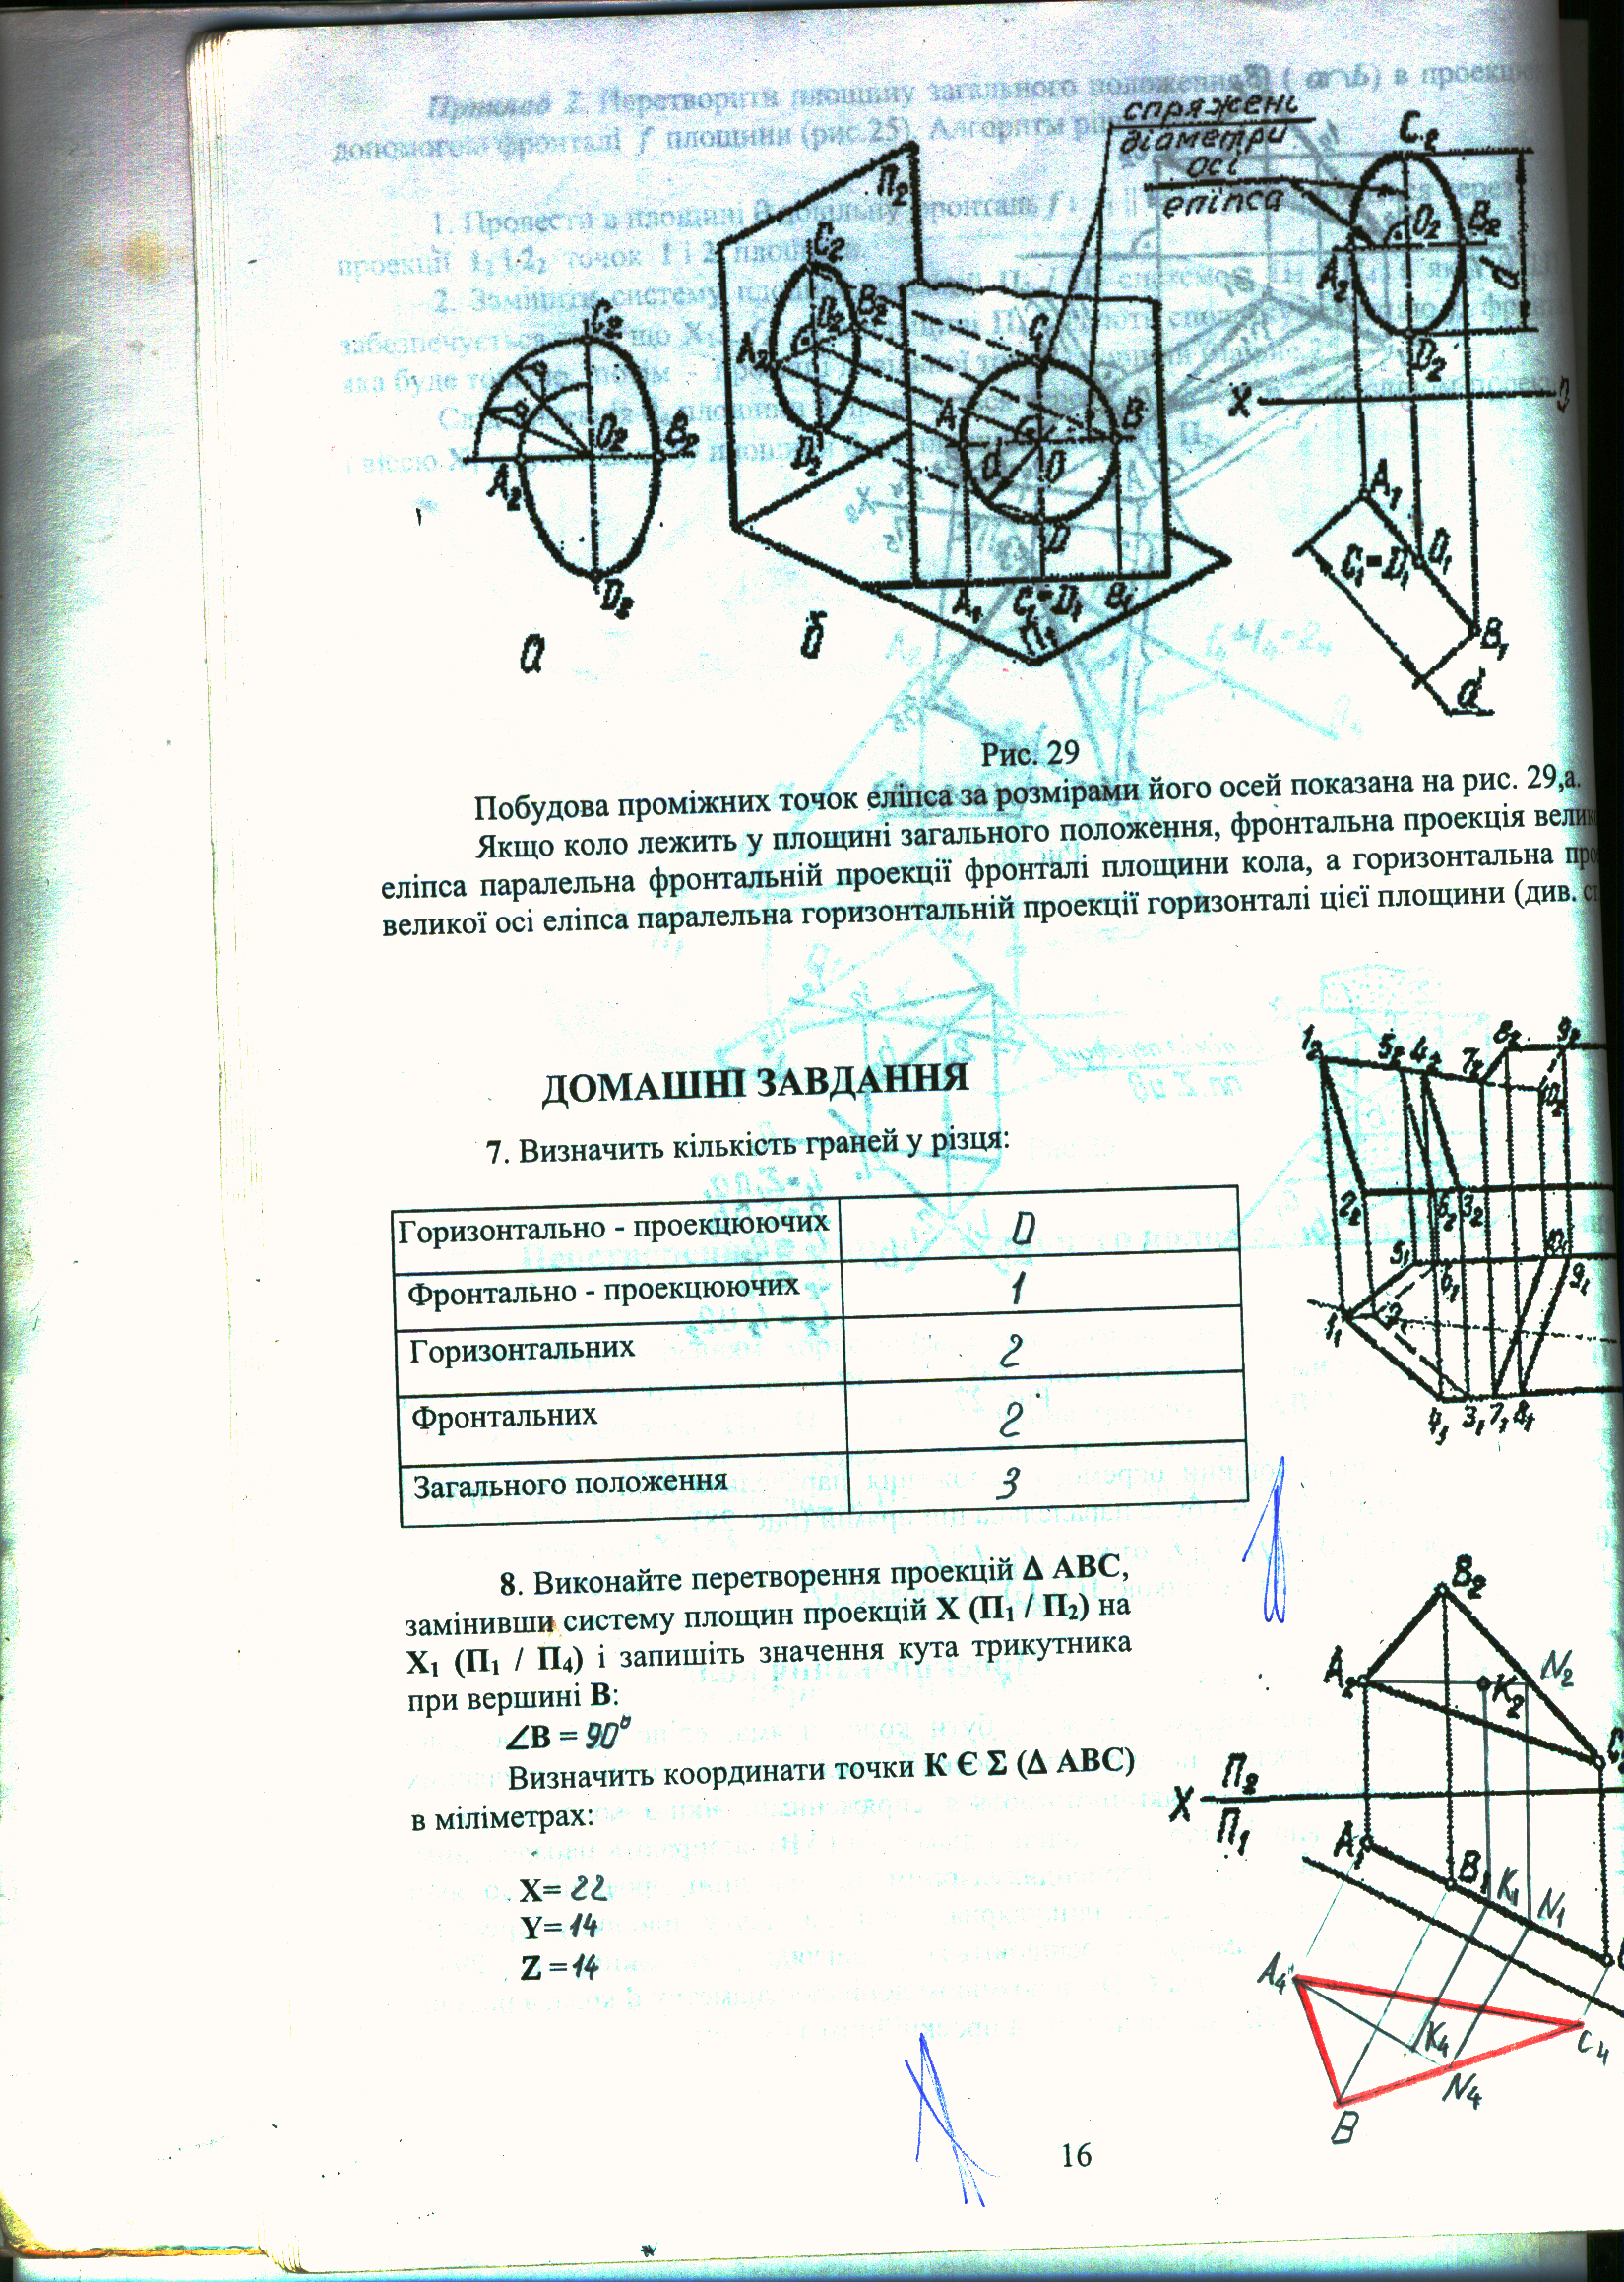 спряжені
діаметри
осі
еліпса
C₂
O₂
B₂
A₂
D₂
X
A₁
C₁=D₁
O₁
B₁
d
d
П₂
C₂
O₂
B₂
A₂
D₂
C
A
B
d
O
D
A₁
C₁=D₁
B₁
П₁
C₂
O₂
B₂
A₂
D₂
а
б
Рис. 29
Побудова проміжних точок еліпса за розмірами його осей показана на рис. 29,а.
Якщо коло лежить у площині загального положення, фронтальна проекція
еліпса паралельна фронтальній проекції фронталі площини кола, а горизонтальна
великої осі еліпса паралельна горизонтальній проекції горизонталі цієї площини (див.
ДОМАШНІ ЗАВДАННЯ
7. Визначить кількість граней у різця:
Горизонтально - проекцюючих 0
Фронтально - проекцюючих 1
Горизонтальних 2
Фронтальних 2
Загального положення 3
1₂ 5₂ 4₂ 7₂ 8₂ 9₂
10₂
2₂ 6₂ 3₂
5₁ 6₁ 10₁ 9₁
1₁ 2₁
4₁ 3₁ 7₁ 8₁
8. Виконайте перетворення проекцій Δ ABC,
замінивши систему площин проекцій X (П₁ / П₂) на
X₁ (П₁ / П₄) і запишіть значення кута трикутника
при вершині B:
∠B = 90°
Визначить координати точки K Є Σ (Δ ABC)
в міліметрах:
X= 22
Y= 14
Z = 14
B₂
A₂
K₂
N₂
X П₂
П₁
A₁
B₁
K₁
N₁
A₄
K₄
C₄
N₄
B
16